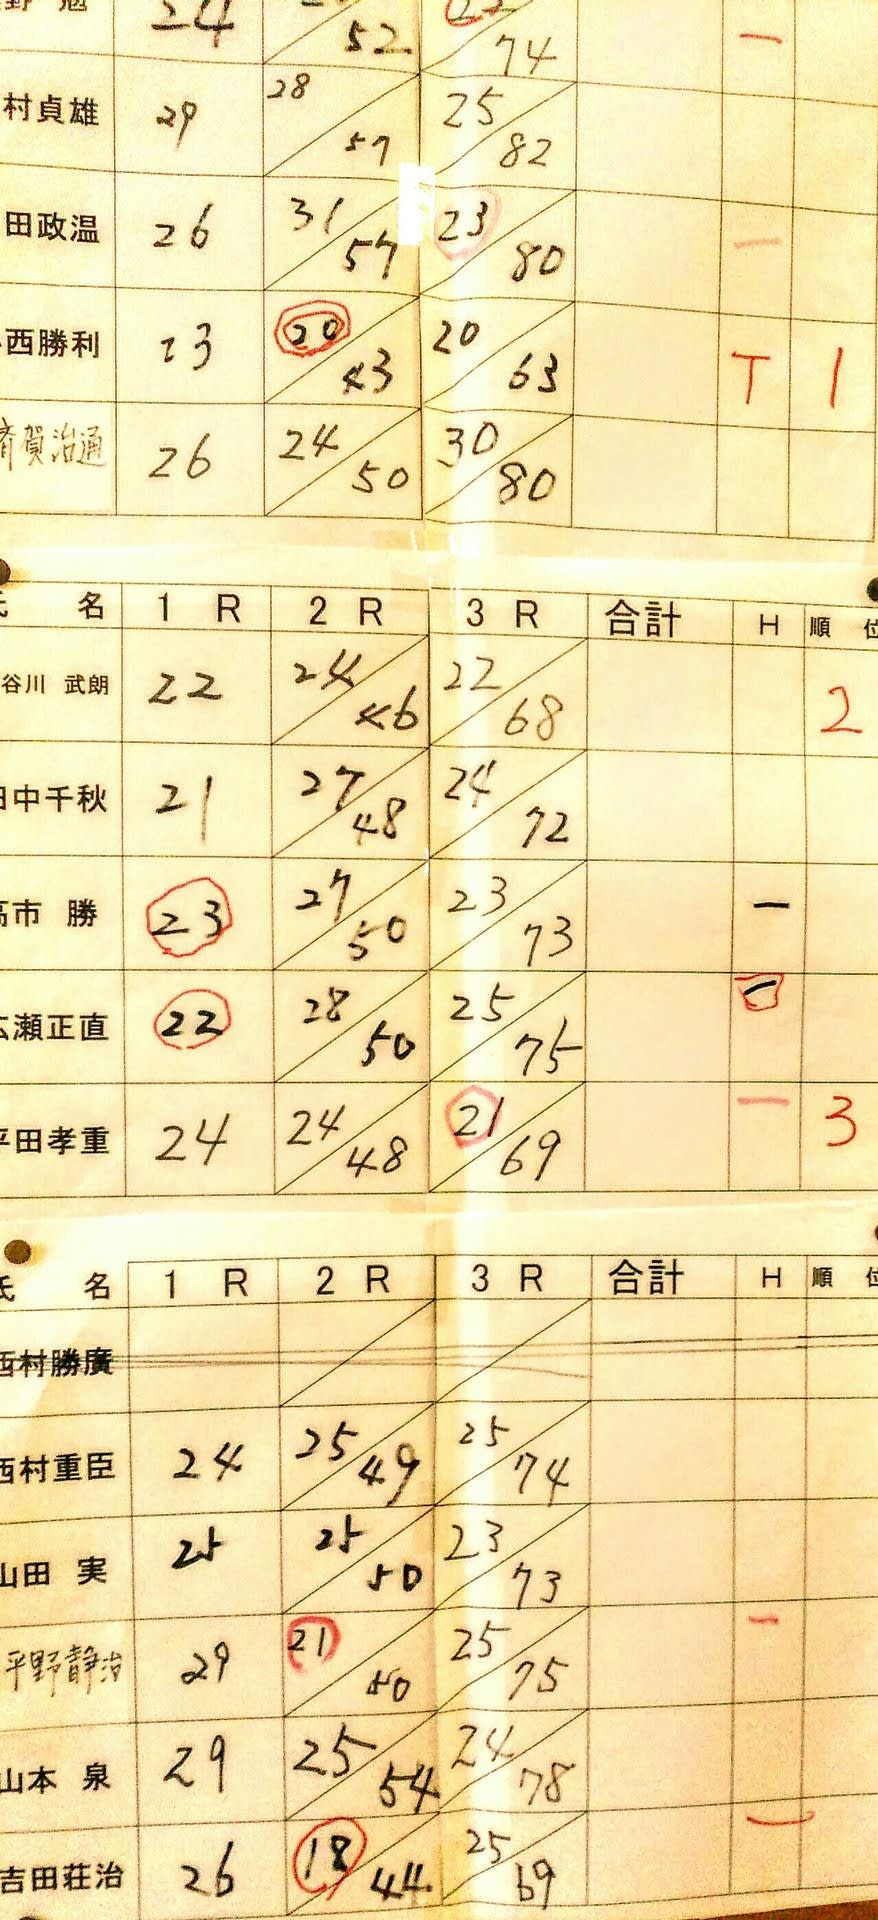 24 52 74 一
村貞雄 29 28 57 25 82
田政温 26 31 57 23 80 一
西勝利 23 20 43 20 63 T 1
賀治通 26 24 50 30 80
名 1 R 2 R 3 R 合計 H 順 位
谷川 武朗 22 24 46 22 68 2
田中千秋 21 27 48 24 72
高市 勝 23 27 50 23 73 一
広瀬正直 22 28 50 25 75 一
平田孝重 24 24 48 21 69 一 3
氏 名 1 R 2 R 3 R 合計 H 順 位
西村勝廣
西村重臣 24 25 49 25 74
山田 実 25 25 50 23 73
平野静治 29 21 50 25 75 一
山本 泉 29 25 54 24 78
吉田荘治 26 18 44 25 69 一